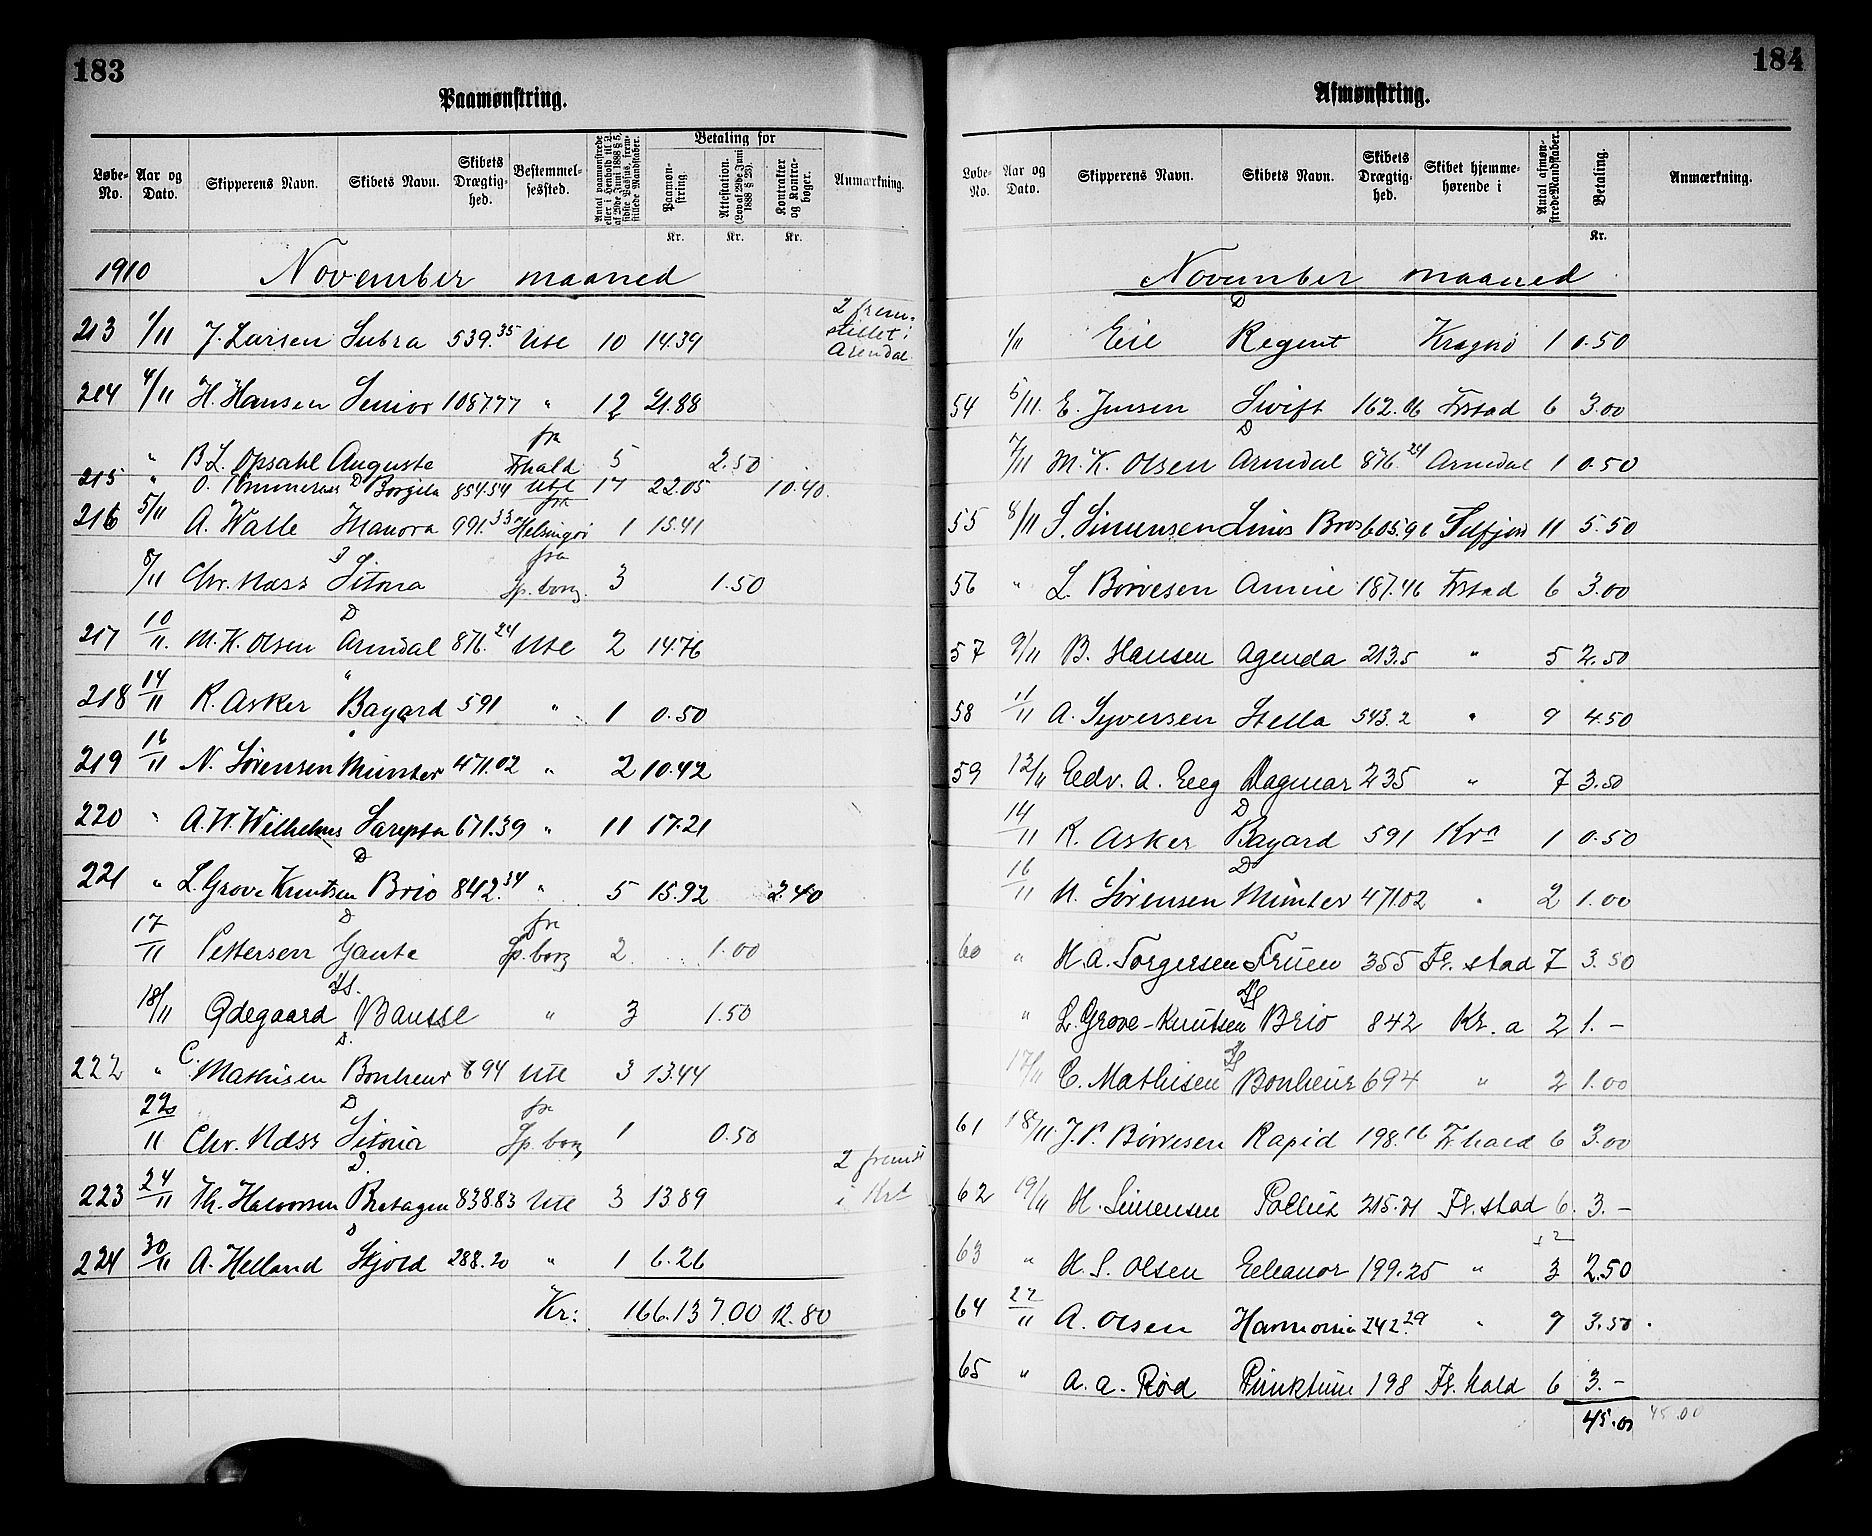 183
Paamønstring.
Løbe-No. Aar og Dato. Skipperens Navn. Skibets Navn. Skibets Drægtighed. Bestemmelsessted. Antal paamønstrede eller i Henhold til Lov af 29de Juni 1888 § 5, sidste Passus, fremstillede Mandskaber. Betaling for Paamønstring. Attestation. (Lov af 29de Juni 1888 § 23). Kontrakter og Kontrabøger. Anmærkning.
Kr. Kr. Kr.
1910 November maaned
213 1/11 J. Larsen Subra 539.35 Ute 10 14.39 2 fremstillet i Arendal.
214 4/11 H. Hansen Senior 1087.77 " 12 21.88
" B L. Opsahl Auguste fra Frhald 5 2.50
215 " O. D Borgila 854.54 Ute 17 22.05 10.40.
216 5/11 A. Walle Manora 991.33 fra Helsingør 1 15.41
8/11 Chr. Næss D Sitona fra Sp.borg. 3 1.50
217 10/11. M. K. Olsen D Arendal 876.24 Ute 2 14.76
218 14/11 R. Asker " Bayard 591 " 1 0.50
219 16/11 N. Sørensen " Münter 471.02 " 2 10.42
220 " A. W. Wilhelms Sarepta 671.39 " 11 17.21
221 " L. Grove Knutsen D Brio 842.34 " 5 15.92 2.40
17/11 Pettersen D Gaute fra Sp.borg 2 1.00
18/11 Ødegaard Ds. Bausse " 3 1.50
222 " C. Mathisen D. Bonheur 694 Ute 3 13.44
22/11 Chr. Næss D Sitona fra Sp.borg 1 0.50
223 24/11 Th. Halvorsen D. Bretagne 838.83 Ute 3 13.89 2 fremst i Krt
224 30/11 A. Helland D Skjold 288.20 " 1 6.26
Kr: 166.13 7.00 12.80
184
Afmønstring.
Løbe-No. Aar og Dato. Skipperens Navn. Skibets Navn. Skibets Drægtighed. Skibet hjemmehørende i Antal afmønstrede Mandskaber. Betaling. Anmærkning.
Kr.
November maaned
1/11 Eie D Regent Kragerø 1 0.50
54 5/11. E. Jensen Swift 162.06 Frstad 6 3.00
7/11 M. K. Olsen D Arendal 876.24 Arendal 1 0.50
55 8/11 S. Simensen Linus Bros 605.96 11 5.50
56 " L. Børvesen Annie 187.46 Frstad 6 3.00
57 9/11 B. Hansen Agenda 213.5 " 5 2.50
58 11/11 A. Syversen Stella 543.2 " 9 4.50
59 12/11 Edv. A. Eeg Dagmar 235 " 7 3.50
14/11 R. Asker D Bayard 591 Kra 1 0.50
16/11 N. Sørensen D Münter 471.02 " 2 1.00
60 " H A. Torgersen Fruen 355 Fr. stad 7 3.50
" L. Grove-Knutsen Ds Brio 842 Kr. a 2 1.–
17/11 C. Mathisen Ds Bonheur 694 " 2 1.00
61 18/11. J. P. Børvesen Rapid 198.16 Fr.hald 6 3.00
62 19/11 H. Simensen Pollux 215.21 Fr. stad 6. 3.–
63 " H. S. Olsen Eleanor 199.25 " 3 2.50
64 22/11 A. Olsen Harmonia 242.29 " 9 3.50.
65 " A. A. Rød Punktum 198 Fr. hald 6 3.–
45.00 45.00